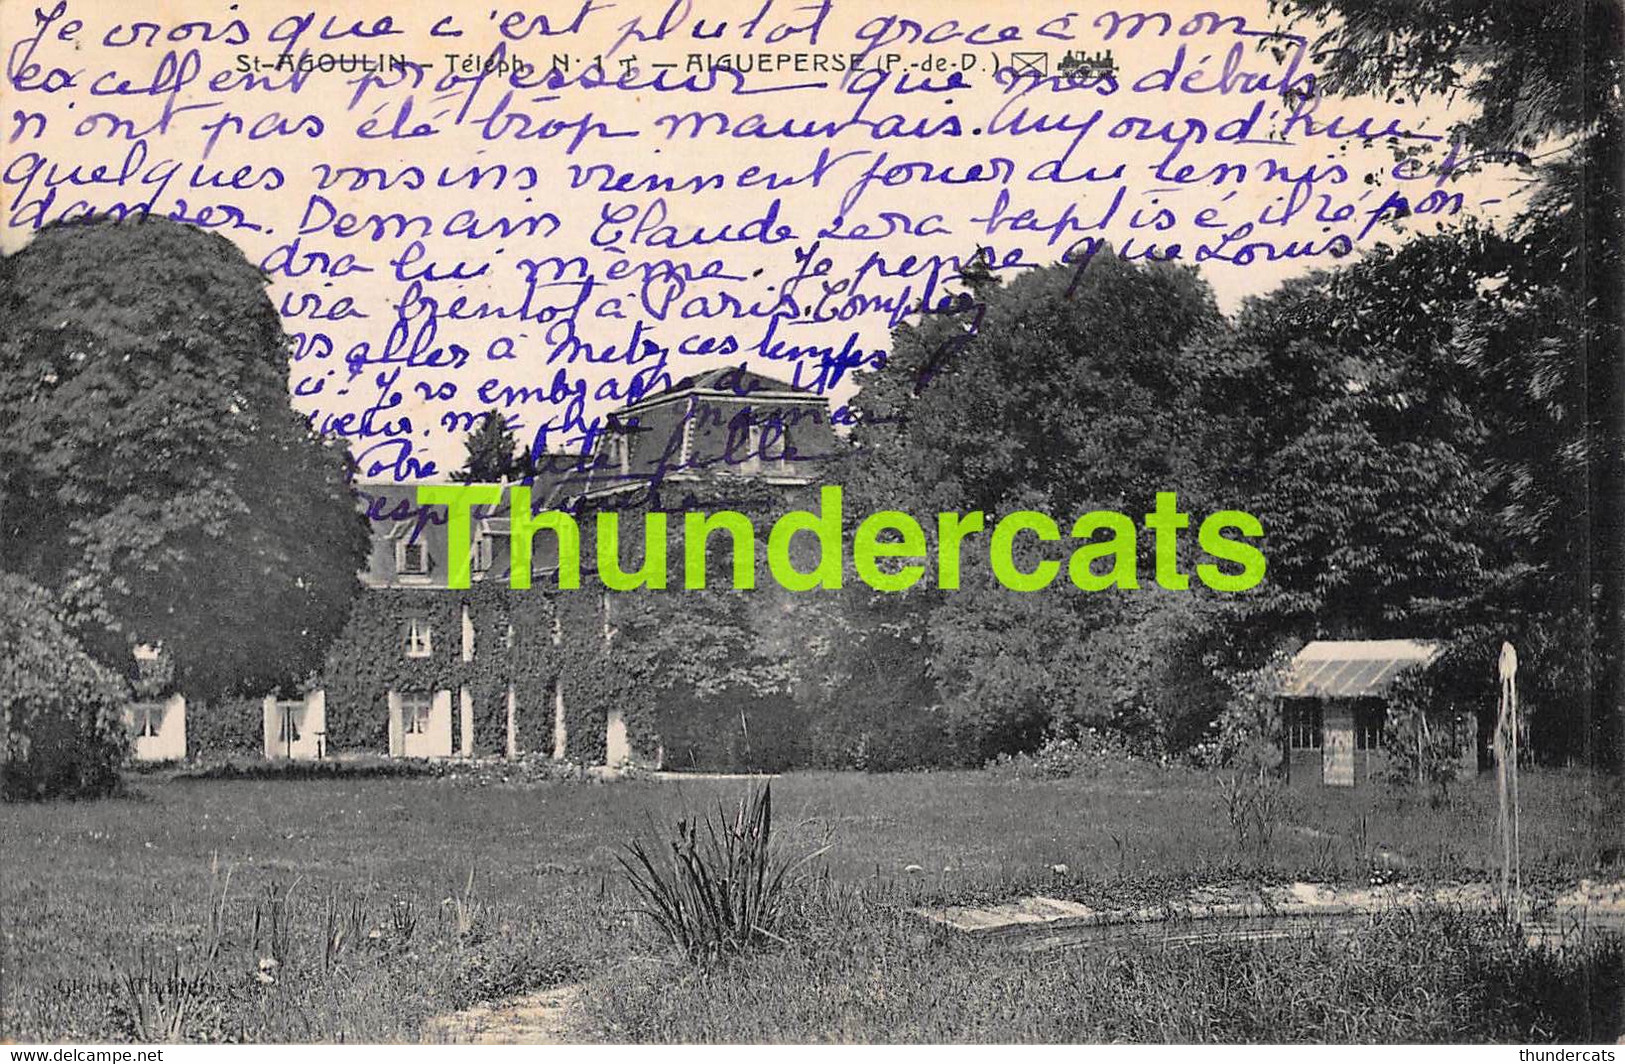 Je crois que c'est plutot grace à mon
St-AGOULIN - Téléph. N. 1 T. - AIGUEPERSE (P.-de-D.)
excellent professeur que mes débuts
n'ont pas été trop mauvais. Aujourd'hui
quelques voisins viennent jouer au tennis et
danser. Demain Claude sera baptisé il répon-
dra lui même. Je pense que Louis
ira bientot à Paris. Comptez
vs aller à Metz ces temps
ci? Je vs embrasse de tt
coeur. ma chère Maman
Votre petite fille
Thundercats
Cliché
thundercats
www.delcampe.net